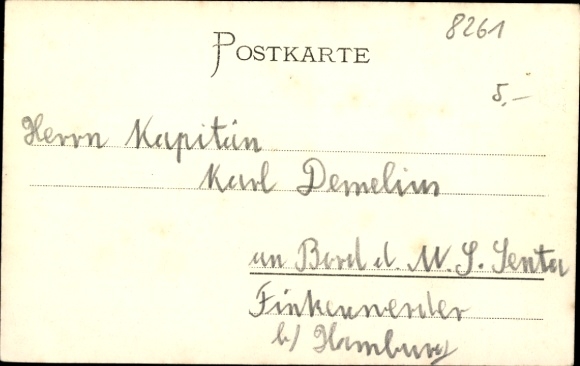 8261
POSTKARTE
5,-
Herrn Kapitän
Karl Demelius
an Bord d. M. S. Senta
Finkenwerder
b/ Hamburg